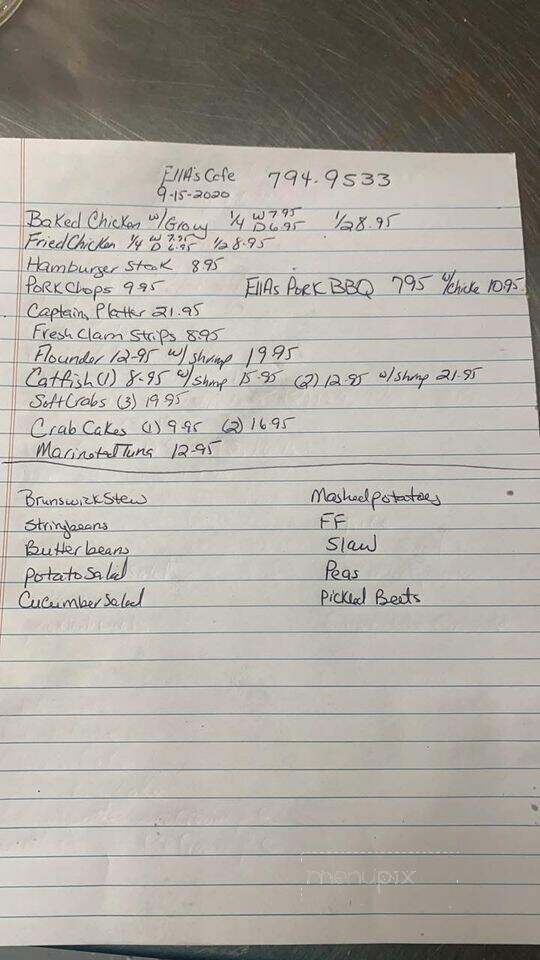 Ella's Cafe 794-9533
9-15-2020
Baked Chicken w/Gravy 1/4 W 7.95 D 6.95 1/2 8.95
Fried Chicken 1/4 W 7.95 D 6.95 1/2 8.95
Hamburger Steak 8.95
Pork Chops 9.95 Ella's Pork BBQ 7.95 w/chicke 10.95
Captain, Platter 21.95
Fresh Clam Strips 8.95
Flounder 12.95 w/ shrimp 19.95
Catfish (1) 8.95 w/shrmp 15.95 (2) 12.95 w/shrmp 21.95
Soft Crabs (3) 19.95
Crab Cakes (1) 9.95 (2) 16.95
Marinated Tuna 12.95
Brunswick Stew Mashed potatoes
Stringbeans FF
Butter beans Slaw
Potato Salad Peas
Cucumber Salad Pickled Beets
menupix